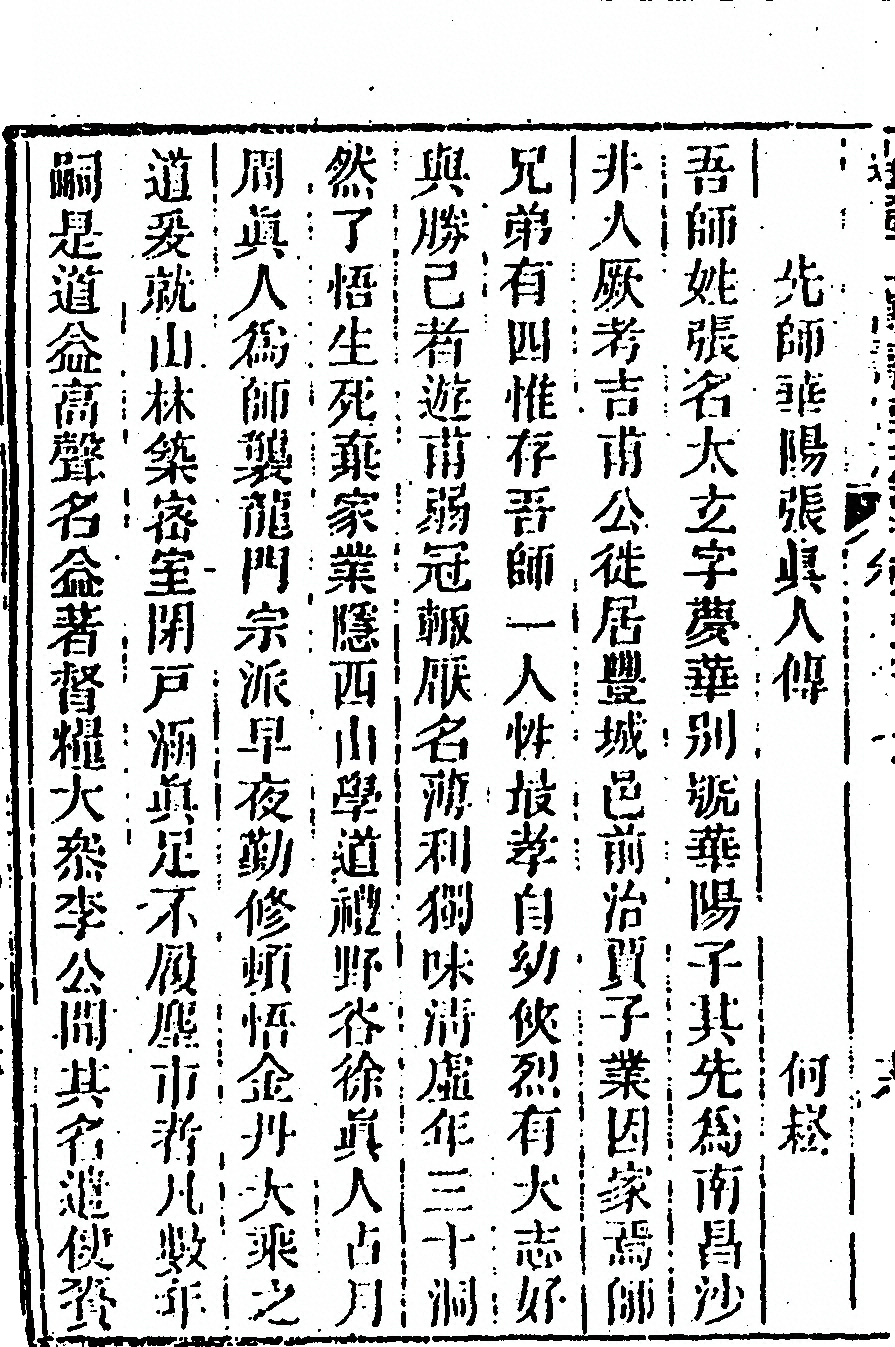 先師華陽張眞人傳 何
吾師姓張名太玄字夢華别號華陽子其先為南昌沙
非人厥考吉甫公徙居豐城邑前治賈子業因家焉師
兄弟有四惟存吾師一人性最孝自幼俠烈有大志好
與勝己者遊甫弱冠輙厭名薄利獨味清虛年三十洞
然了悟生死棄家業隱西山學道禮野谷徐眞人占月
周眞人為師襲龍門宗派早夜勤修頓悟金丹大乘之
道爰就山林築密室閉戸涵眞足不履塵市者凡數年
嗣是道益高聲名益著督糧大叅李公聞其名遣使賫